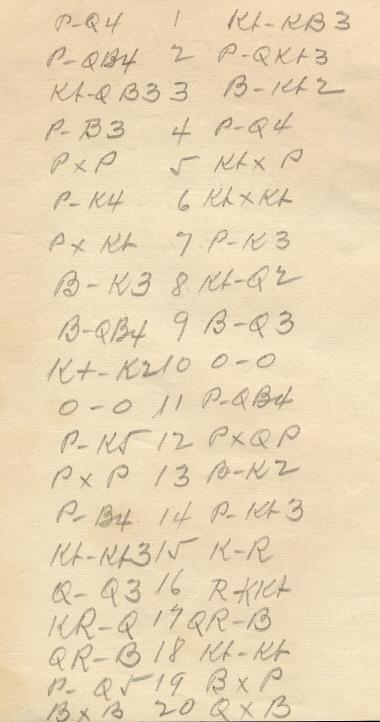 P-Q4 1 Kt-KB3
P-QB4 2 P-QKt3
Kt-QB3 3 B-Kt2
P-B3 4 P-Q4
PxP 5 KtxP
P-K4 6 KtxKt
PxKt 7 P-K3
B-K3 8 Kt-Q2
B-QB4 9 B-Q3
Kt-K2 10 0-0
0-0 11 P-QB4
P-K5 12 PxQP
PxP 13 B-K2
P-B4 14 P-Kt3
Kt-Kt3 15 K-R
Q-Q3 16 R-KKt
KR-Q 17 QR-B
QR-B 18 Kt-Kt
P-Q5 19 BxP
BxB 20 QxB